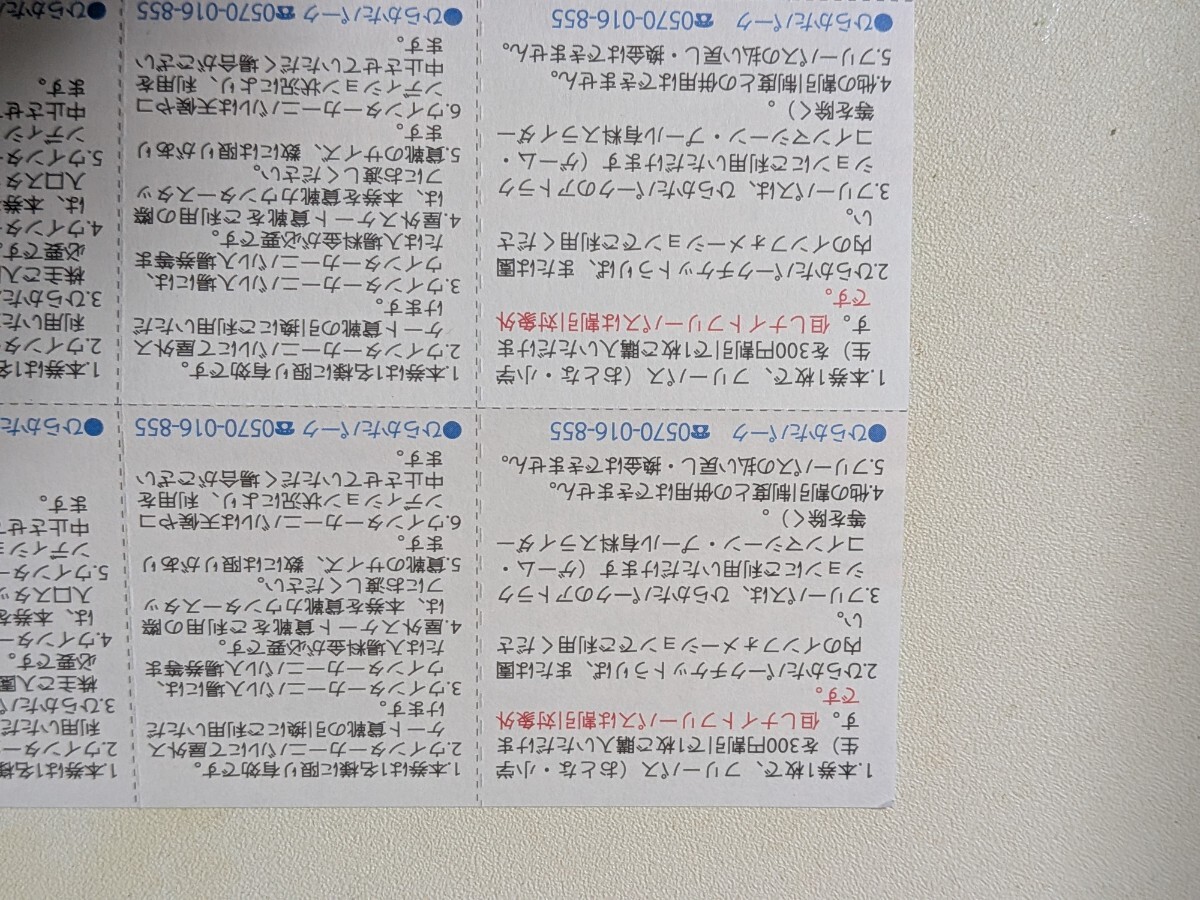 1.本券1枚で、フリーパス（おとな・小学
生）を300円割引で1枚ご購入いただけま
す。但しナイトフリーパスは割引対象外
です。
2.ひらかたパークチケットうりば、または園
内のインフォメーションでご利用くださ
い。
3.フリーパスは、ひらかたパークのアトラク
ションにご利用いただけます（ゲーム・
コインマシーン・プール有料スライダー
等を除く）。
4.他の割引制度との併用はできません。
5.フリーパスの払い戻し・換金はできません。
●ひらかたパーク ☎0570-016-855
1.本券は1名様に限り有効です。
2.ウインターカーニバルにて屋外ス
ケート貸靴の引換にご利用いただ
けます。
3.ウインターカーニバル入場には、
ウインターカーニバル入場券等ま
たは入場料金が必要です。
4.屋外スケート貸靴をご利用の際
は、本券を貸靴カウンタースタッ
フにお渡しください。
5.貸靴のサイズ、数には限りがあり
ます。
6.ウインターカーニバルは天候やコ
ンディション状況により、利用を
中止させていただく場合がござい
ます。
●ひらかたパーク ☎0570-016-855
1.本券は1名様
2.ウインター
利用いただ
3.ひらかたパ
株主ご入園
必要です。
4.ウインター
は、本券を
入口スタッ
5.ウインター
ンディショ
中止させ
ます。
●ひらかた
1.本券1枚で、フリーパス（おとな・小学
生）を300円割引で1枚ご購入いただけま
す。但しナイトフリーパスは割引対象外
です。
2.ひらかたパークチケットうりば、または園
内のインフォメーションでご利用くださ
い。
3.フリーパスは、ひらかたパークのアトラク
ションにご利用いただけます（ゲーム・
コインマシーン・プール有料スライダー
等を除く）。
4.他の割引制度との併用はできません。
5.フリーパスの払い戻し・換金はできません。
●ひらかたパーク ☎0570-016-855
1.本券は1名様に限り有効です。
2.ウインターカーニバルにて屋外ス
ケート貸靴の引換にご利用いただ
けます。
3.ウインターカーニバル入場には、
ウインターカーニバル入場券等ま
たは入場料金が必要です。
4.屋外スケート貸靴をご利用の際
は、本券を貸靴カウンタースタッ
フにお渡しください。
5.貸靴のサイズ、数には限りがあり
ます。
6.ウインターカーニバルは天候やコ
ンディション状況により、利用を
中止させていただく場合がござい
ます。
●ひらかたパーク ☎0570-016-855
1.本券は1名
2.ウインター
利用いた
3.ひらかた
株主ご入
必要です
4.ウインター
は、本券
入口スタ
5.ウインタ
ンディシ
中止させ
ます。
●ひらかたパ